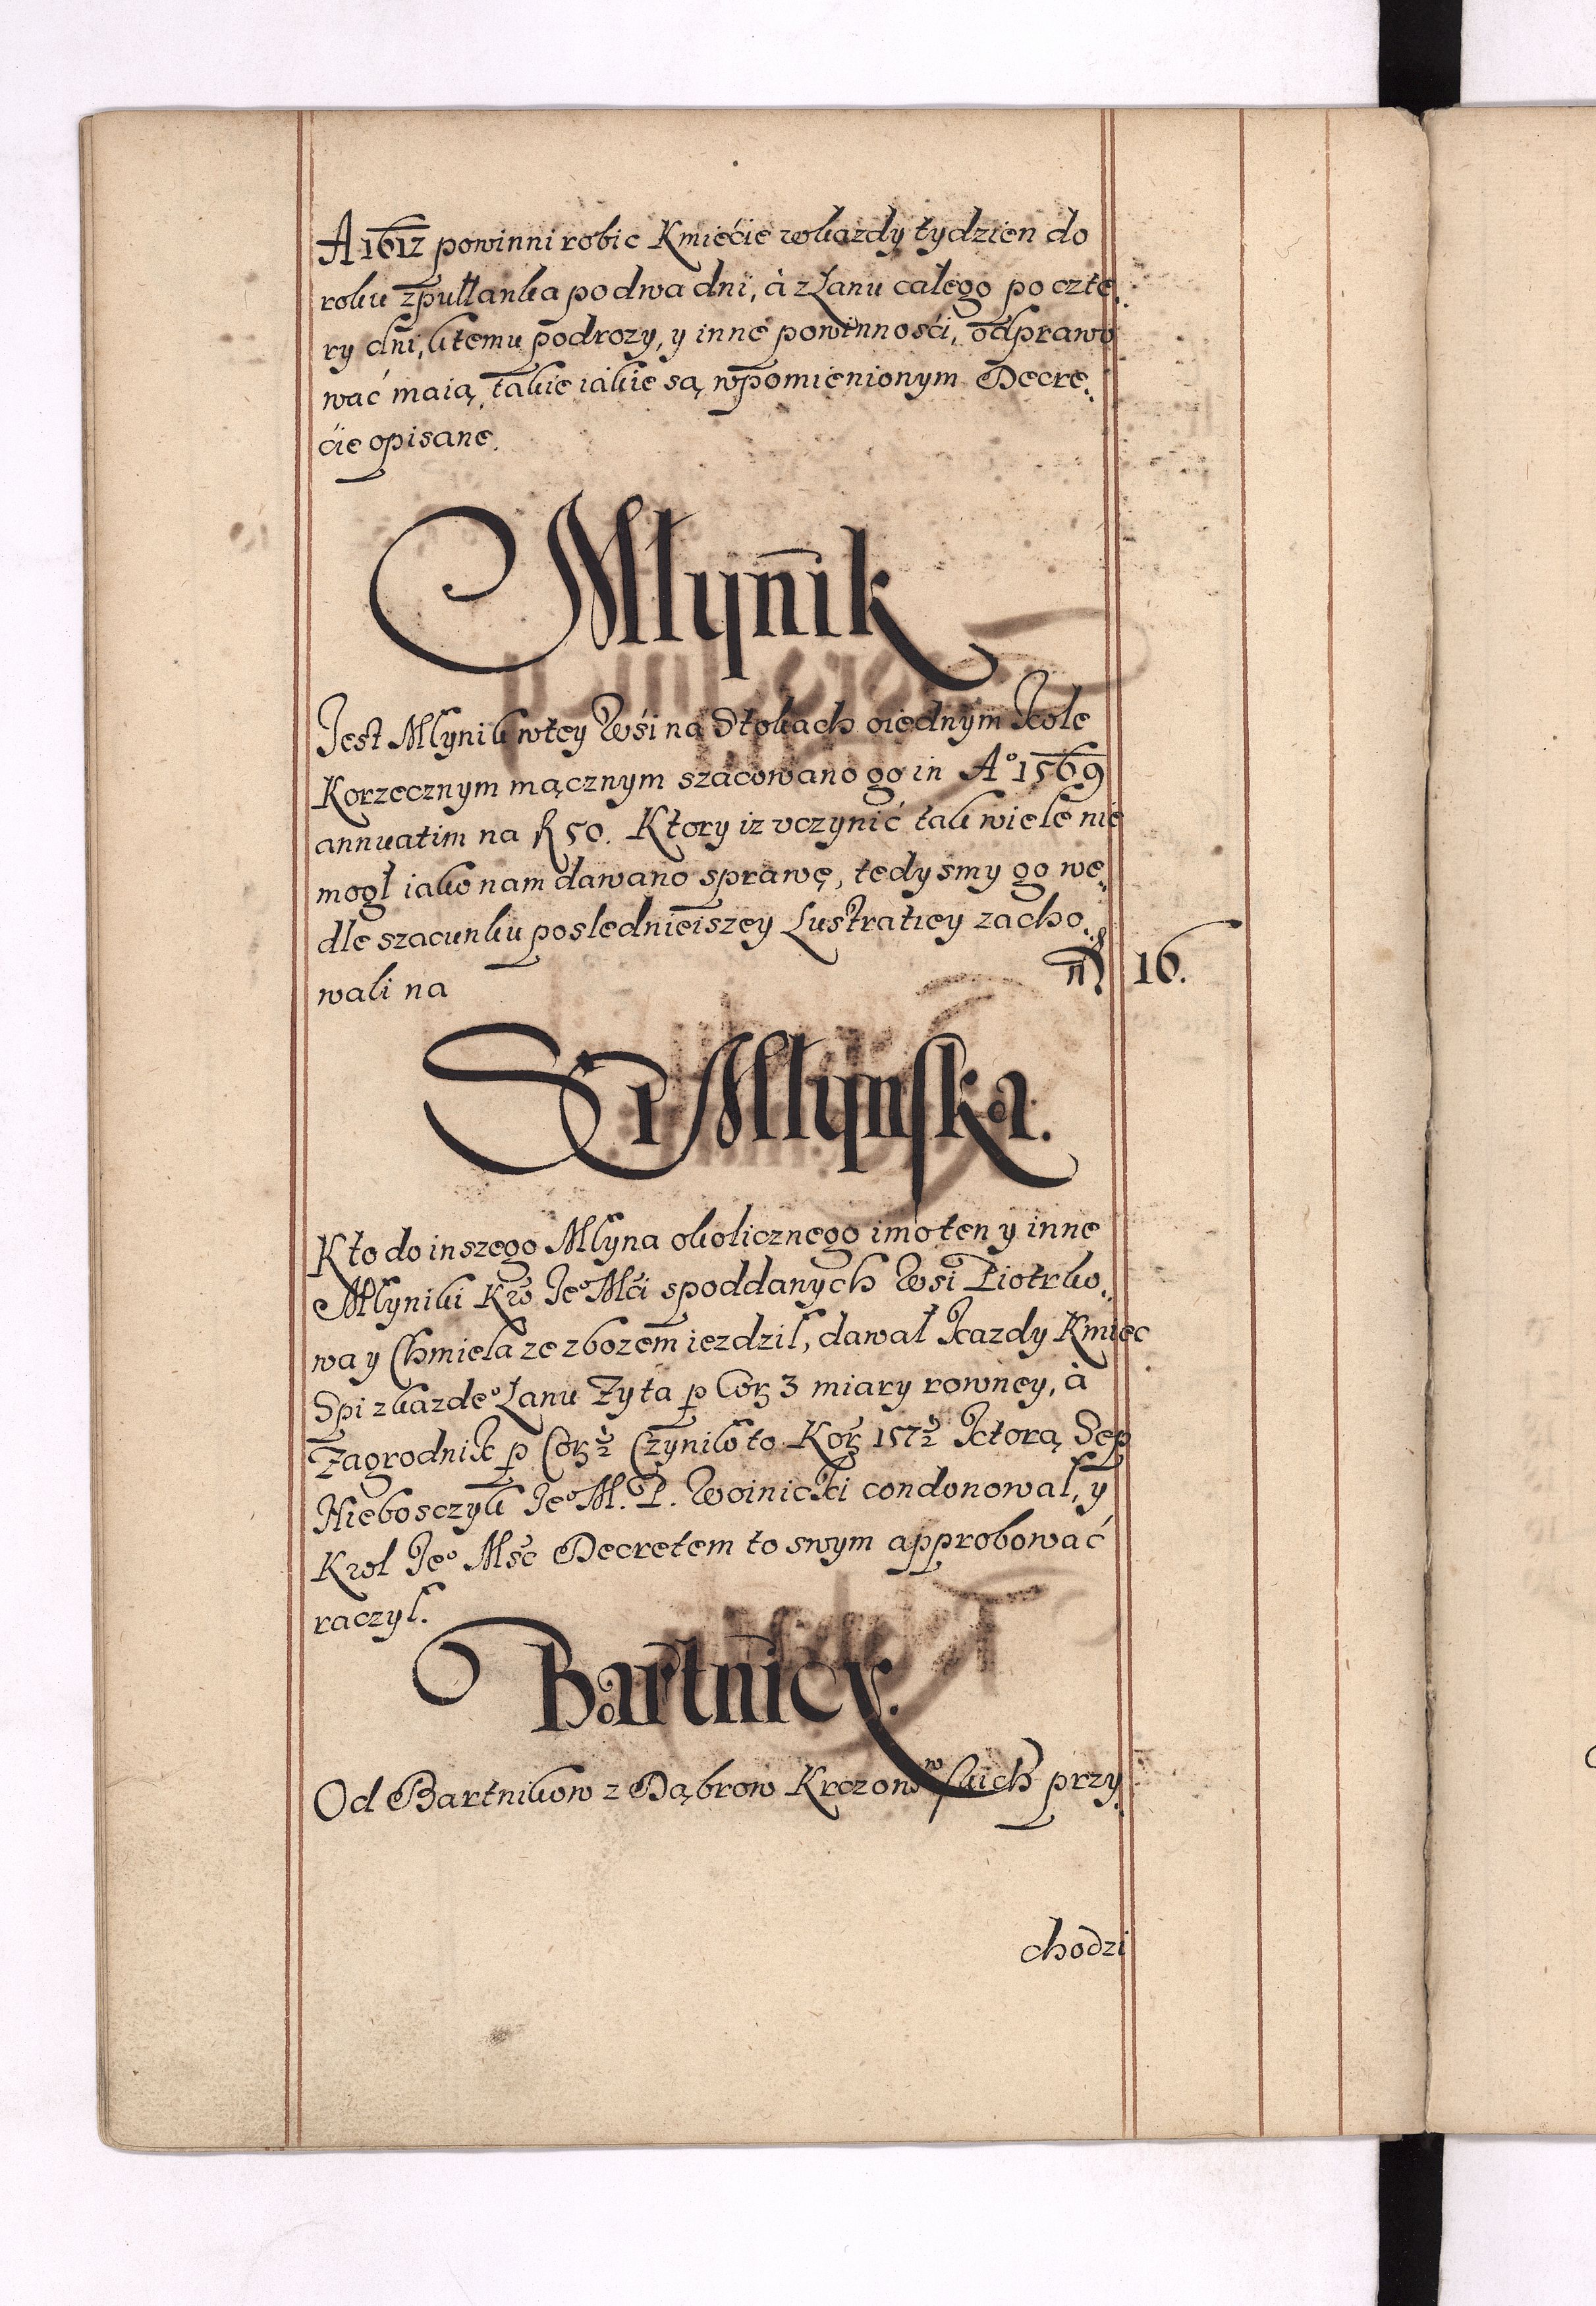 A 1612 powinni robic Kmiećie wkazdy tydzien do
roku zpułłanka po dwa dni, à z Łanu całego po czte:
ry dni, ktemu podrozy, y inne powinnośći, odprawo
wać maią, takie iakie są wpomienionym Decre:
ćie opisane.
Młynik
Jest Młynik wtey Wśi na Stokach oiednym Kole
Korzecznym mącznym szacowano go in A° 1569
annuatim na fl 50. Ktory iz vczynić tak wiele nie
mogł iako nam dawano sprawę, tedysmy go we:
dle szacunku posledniejszey Lustratiey zacho:
wali na fl 16.
Sep Młynska.
Kto do inszego Młyna okolicznego imo ten y inne
Młyniki Kró Je° Mći spoddanych Wsi Piotrko:
wa y Chmiela ze zbozem iezdził, dawał Kazdy Kmiec
Spi zkazde° Łanu Zyta p Corz 3 miary rowney, à
Zagrodnik p Corz ½ Czyniło to Korz 157½ Ktorą Sep
Niebosczyk Je° M. P. Woinicki condonował, y
Krol Je° Msć Decretem to swym approbować
raczył.
Bartnicy.
Od Bartnikow z Dąbrow Krczonowskich przy:
chodzi